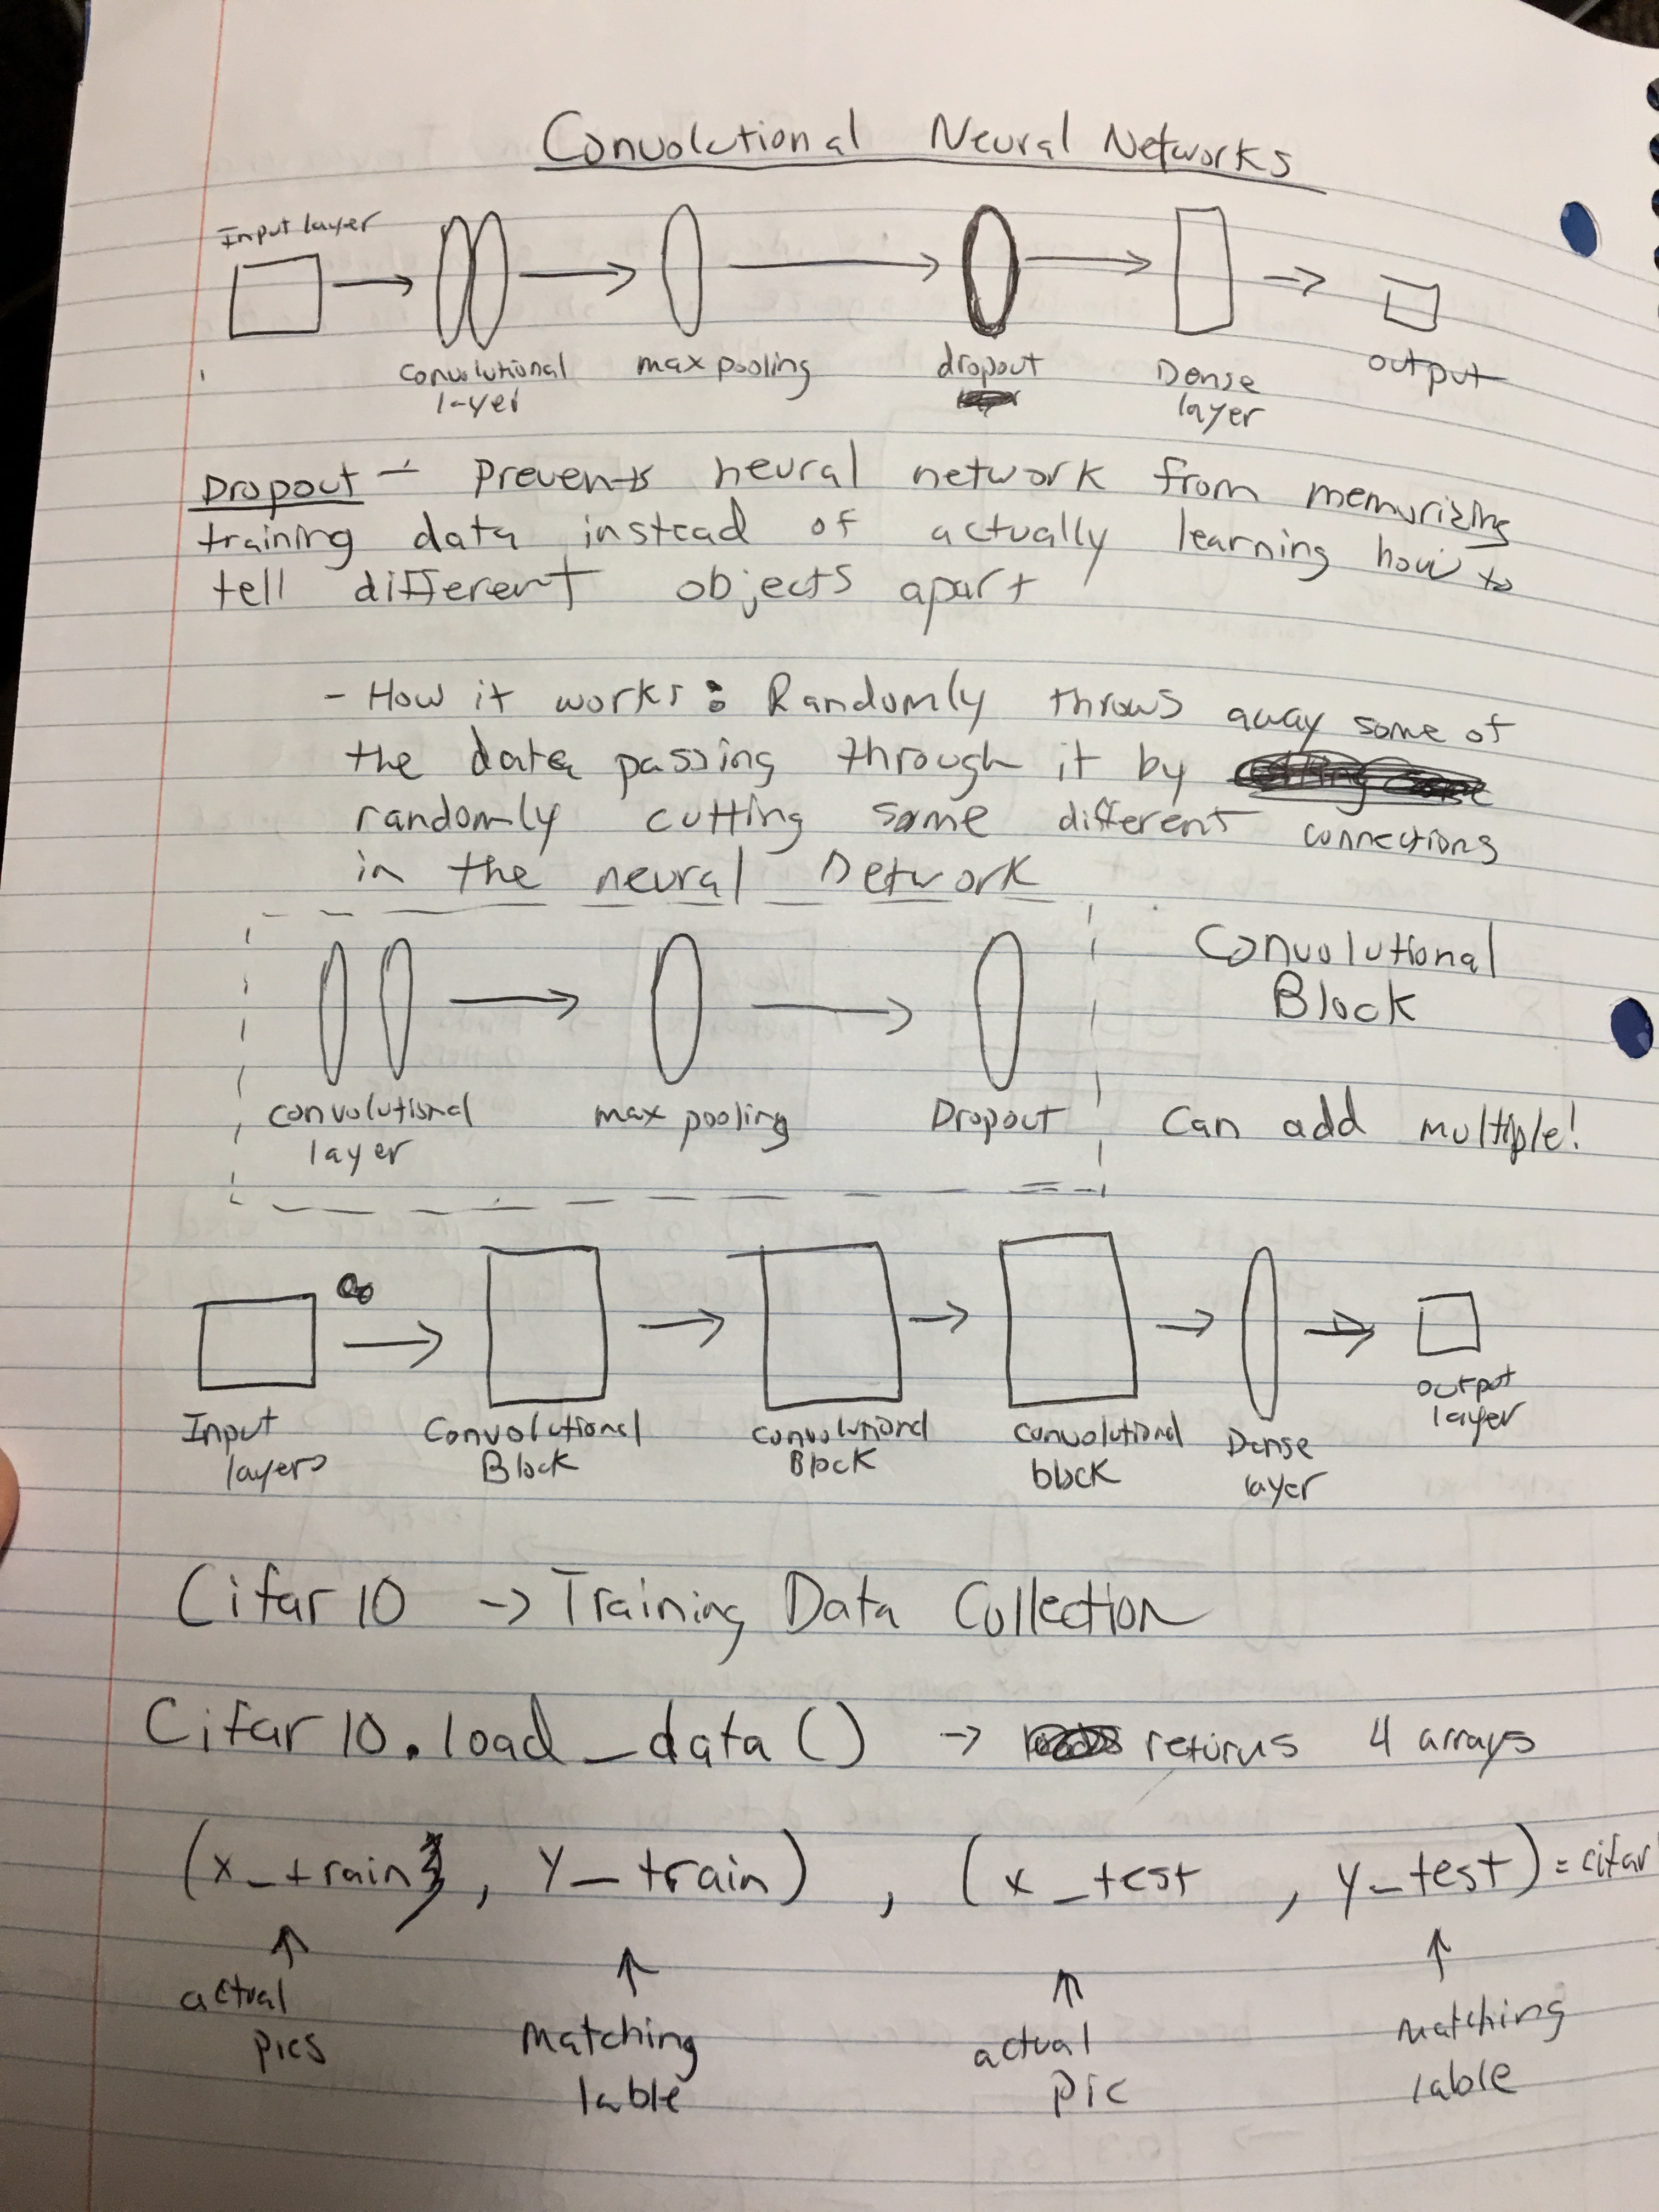 Convolutional Neural Networks
Input layer
Convolutional layer
max pooling
dropout
Dense layer
output
Dropout - Prevents neural network from memurizing
training data instead of actually learning how to
tell different objects apart
- How it works: Randomly throws away some of
the data passing through it by
randomly cutting some different connections
in the neural Network
Convolutional
Block
convolutional
layer
max pooling
Dropout
Can add multiple!
Input
layers
Convolutional
Block
convolutional
Block
convolutional
block
Dense
layer
output
layer
Cifar10 -> Training Data Collection
Cifar10.load_data() -> returns 4 arrays
(x_train, y_train), (x_test, y_test) = cifar
actual
pics
Matching
lable
actual
pic
Matching
lable